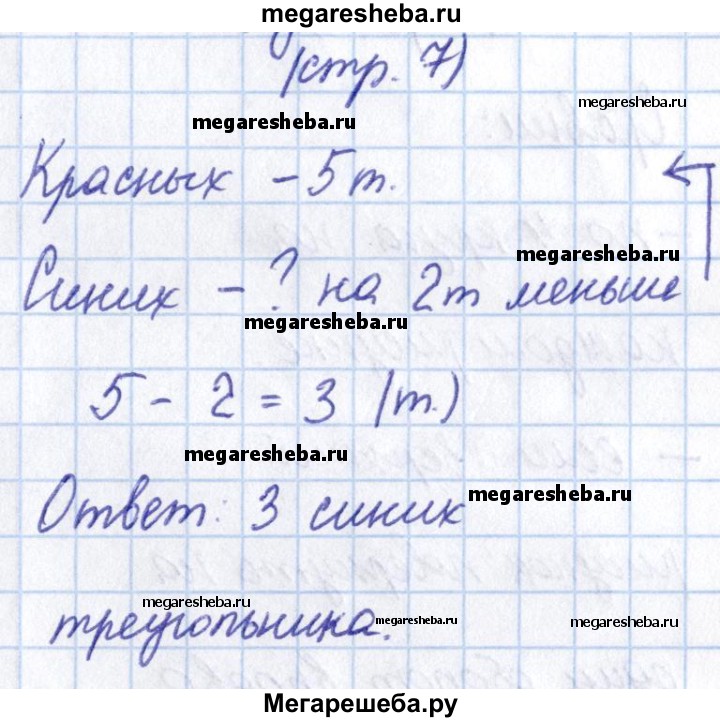 megaresheba.ru
(стр. 7)
megaresheba.ru
megaresheba.ru
Красных - 5т.
megaresheba.ru
Синих - ? на 2т меньше
megaresheba.ru
5 - 2 = 3 (т.)
megaresheba.ru
megaresheba.ru
Ответ: 3 синих
megaresheba.ru
megaresheba.ru
megaresheba.ru
треугольника.
Мегарешеба.ру